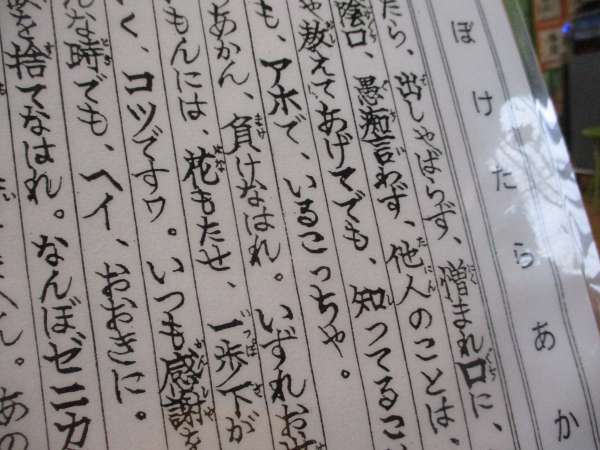 ぼけたらあか
たら、出しゃばらず、憎まれ口に、
陰口、愚痴言わず、他人のことは、
教えてあげてでも、知ってるこ
も、アホで、いるこっちゃ。
あかん、負けなはれ。いずれお
もんには、花もたせ、一歩下が
く、コツですワ。いつも感謝を
な時でも、ヘイ、おおきに。
を捨てなはれ。なんぼゼニカ
へん。あの